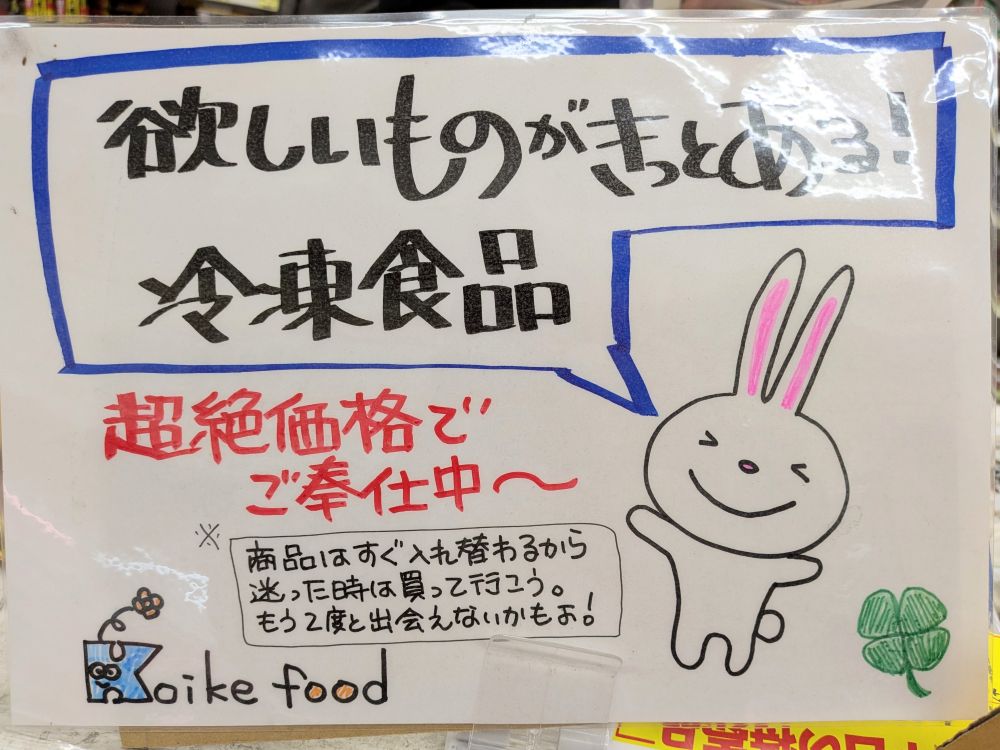 欲しいものがきっとある!
冷凍食品
超絶価格で
ご奉仕中〜
※
商品はすぐ入れ替わるから
迷った時は買って行こう。
もう2度と出会えないかもよ!
Koike food